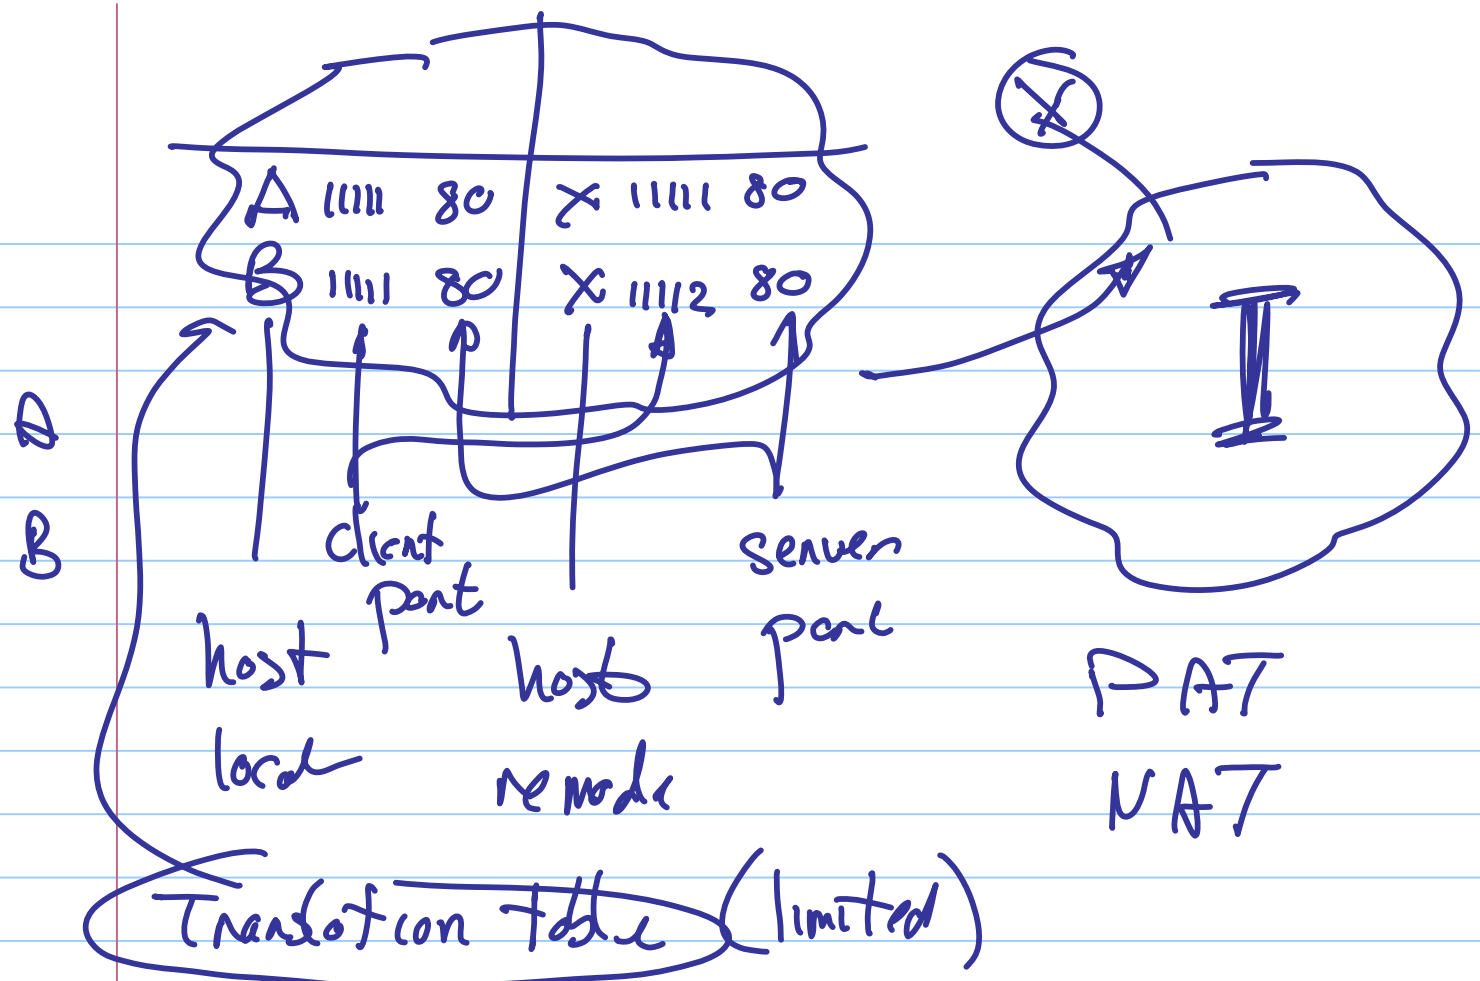 X
A 11111 80 X 11111 80
B 11111 80 X 11112 80
I
A
B
client port
server port
host local
host remote
PAT
NAT
Translation table (limited)